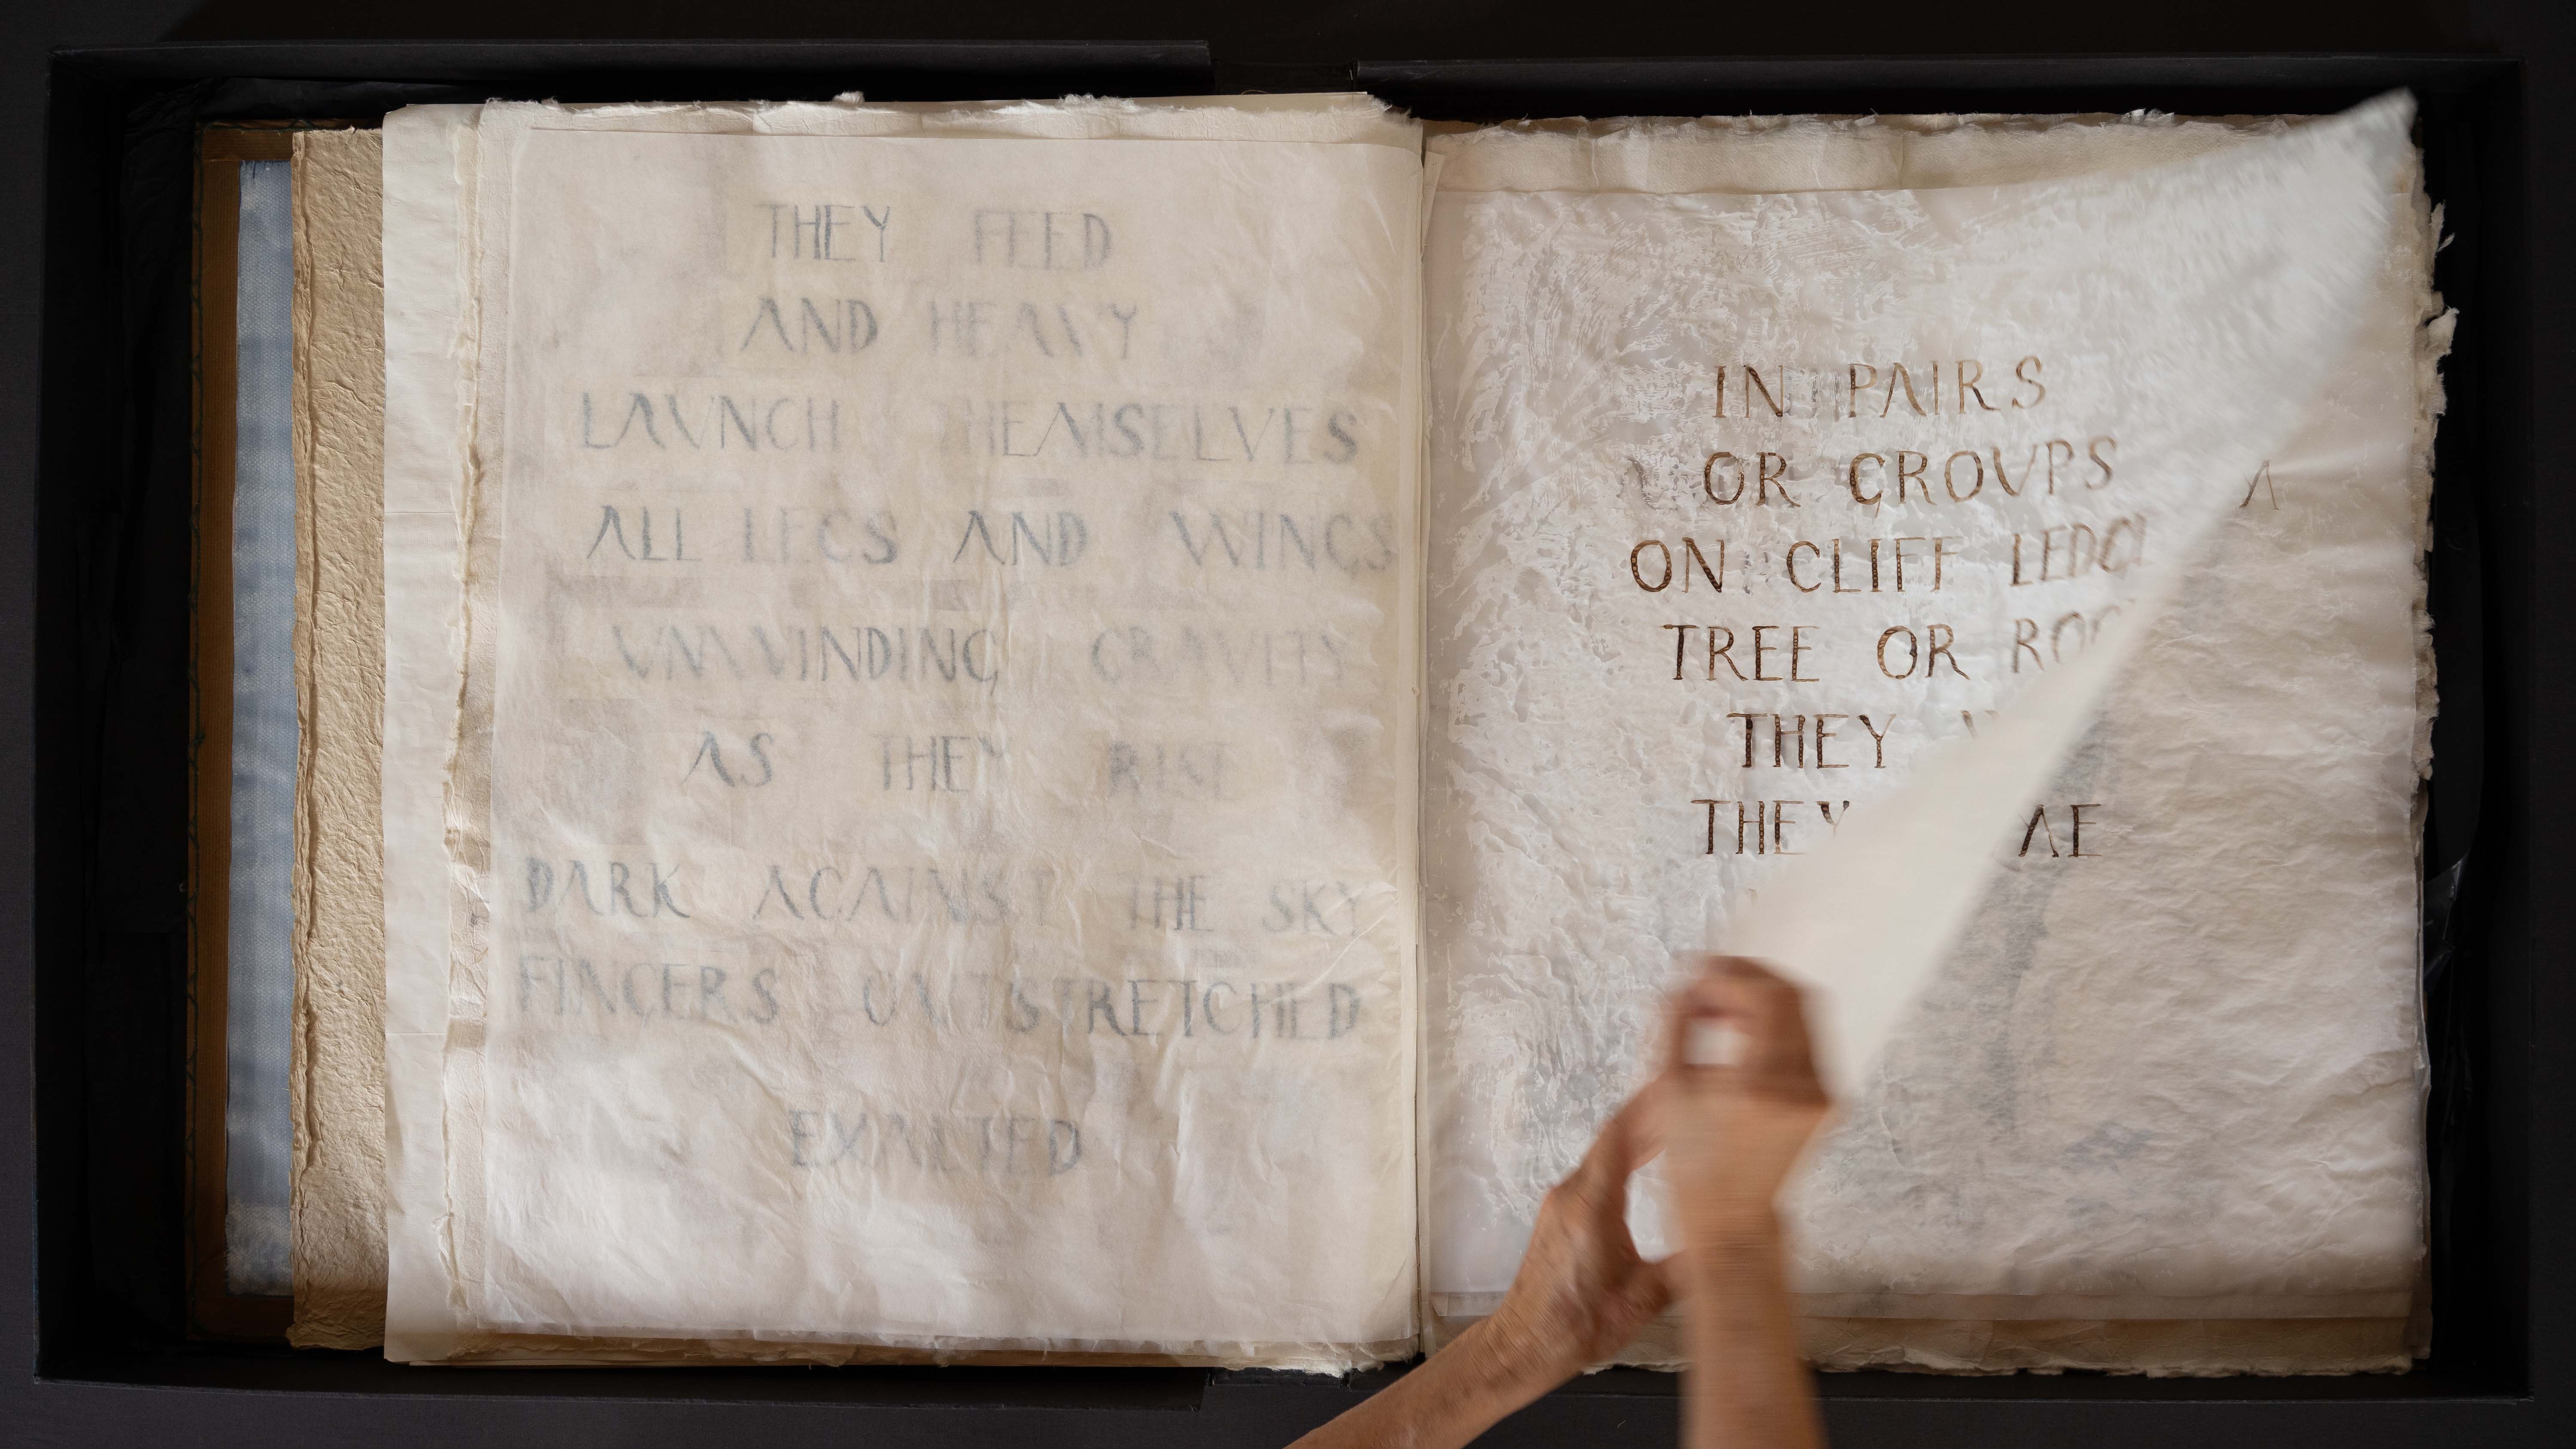 THEY FEED
AND HEAVY
LAUNCH THEMSELVES
ALL LEGS AND WINGS
UNWINDING GRAVITY
AS THEY RISE
DARK AGAINST THE SKY
FINGERS OUTSTRETCHED
EXALTED
IN PAIRS
OR GROUPS
ON CLIFF
TREE OR
THEY
THEY